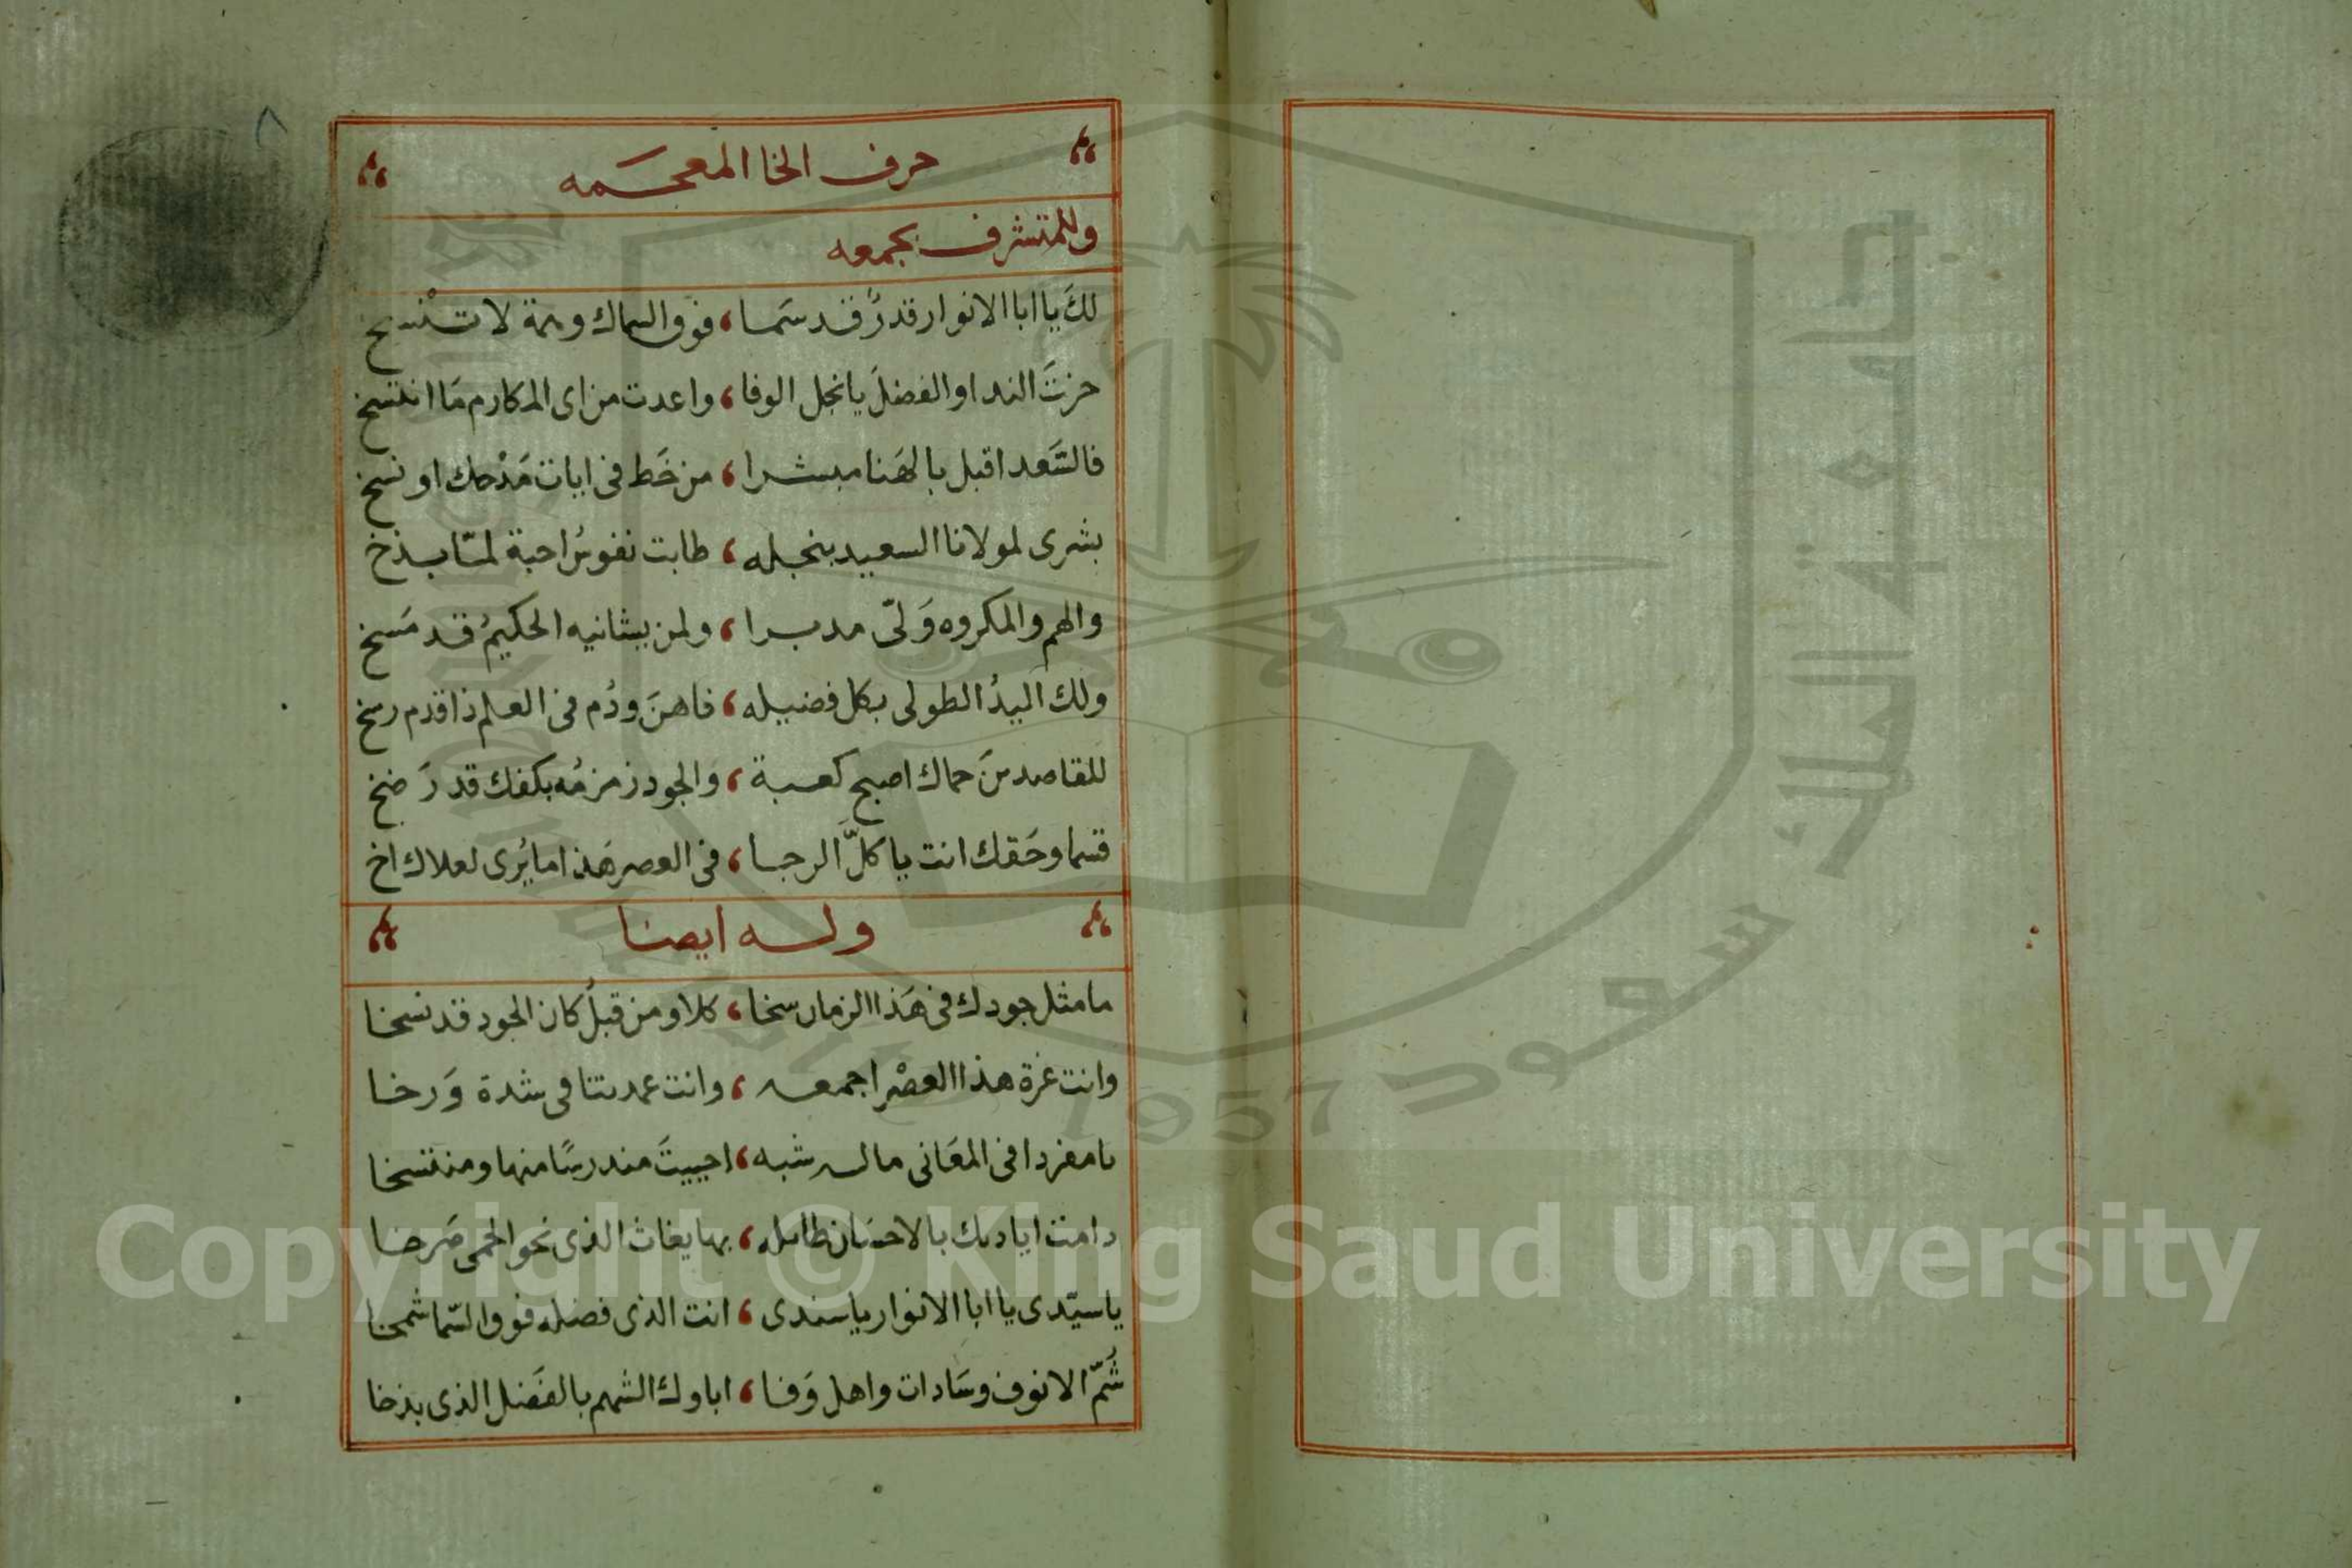 حرف الخا المعجمه
وللمتشرف بجمعه
لكَ يا ابا الانوار قدرٌ قد سَما ، فوق السماك وهمة لا تنْسخ
حزتَ الندا والفضلَ يا نجل الوفا ، واعدت من اى المكارم مَا انتسخ
فالسَّعد اقبل بالهَنا مبشرا ، من خَط فى ايات مَدْحك او نسخ
بشرى لمولانا السعيد بنجله ، طابت نفوسُ احبة لمّا بذخ
والهم والمكروه وَلىّ مدبرا ، ولمن يشانيه الحكيمُ قد مَسخ
ولك اليدُ الطولى بكل فضيله ، فاهنَ ودُم فى العلم ذا قدم رسخ
للقاصدينَ حماك اصبح كعبة ، والجود زمزمُه بكفك قد رَضخ
قسما وحَقك انت يا كلَّ الرجا ، فى العصر هَذا ما يُرى لعلاك اخ
وله ايضا
ما مثل جودك فى هَذا الزمان سخا ، كلا ومن قبلُ كان الجود قد نسخا
وانت غرة هذا العصْر اجمعه ، وانت عمدتنا فى شدة وَرخا
يا مفردا فى المعَانى ماله شبه ، احييتَ مندرسًا منها ومنتسخا
دامت اياديك بالاحسَان طايله ، بها يغاث الذى نحو الحمى صَرخا
يا سيّدى يا ابا الانوار يا سندى ، انت الذى فضله فوق السّما شمخا
شُمّ الانوف وسَادات واهل وَفا ، اباوك الشهم بالفَضل الذى بذخا
٨
جامعة الملك سعود
King Saud University
1957
Copyright © King Saud University